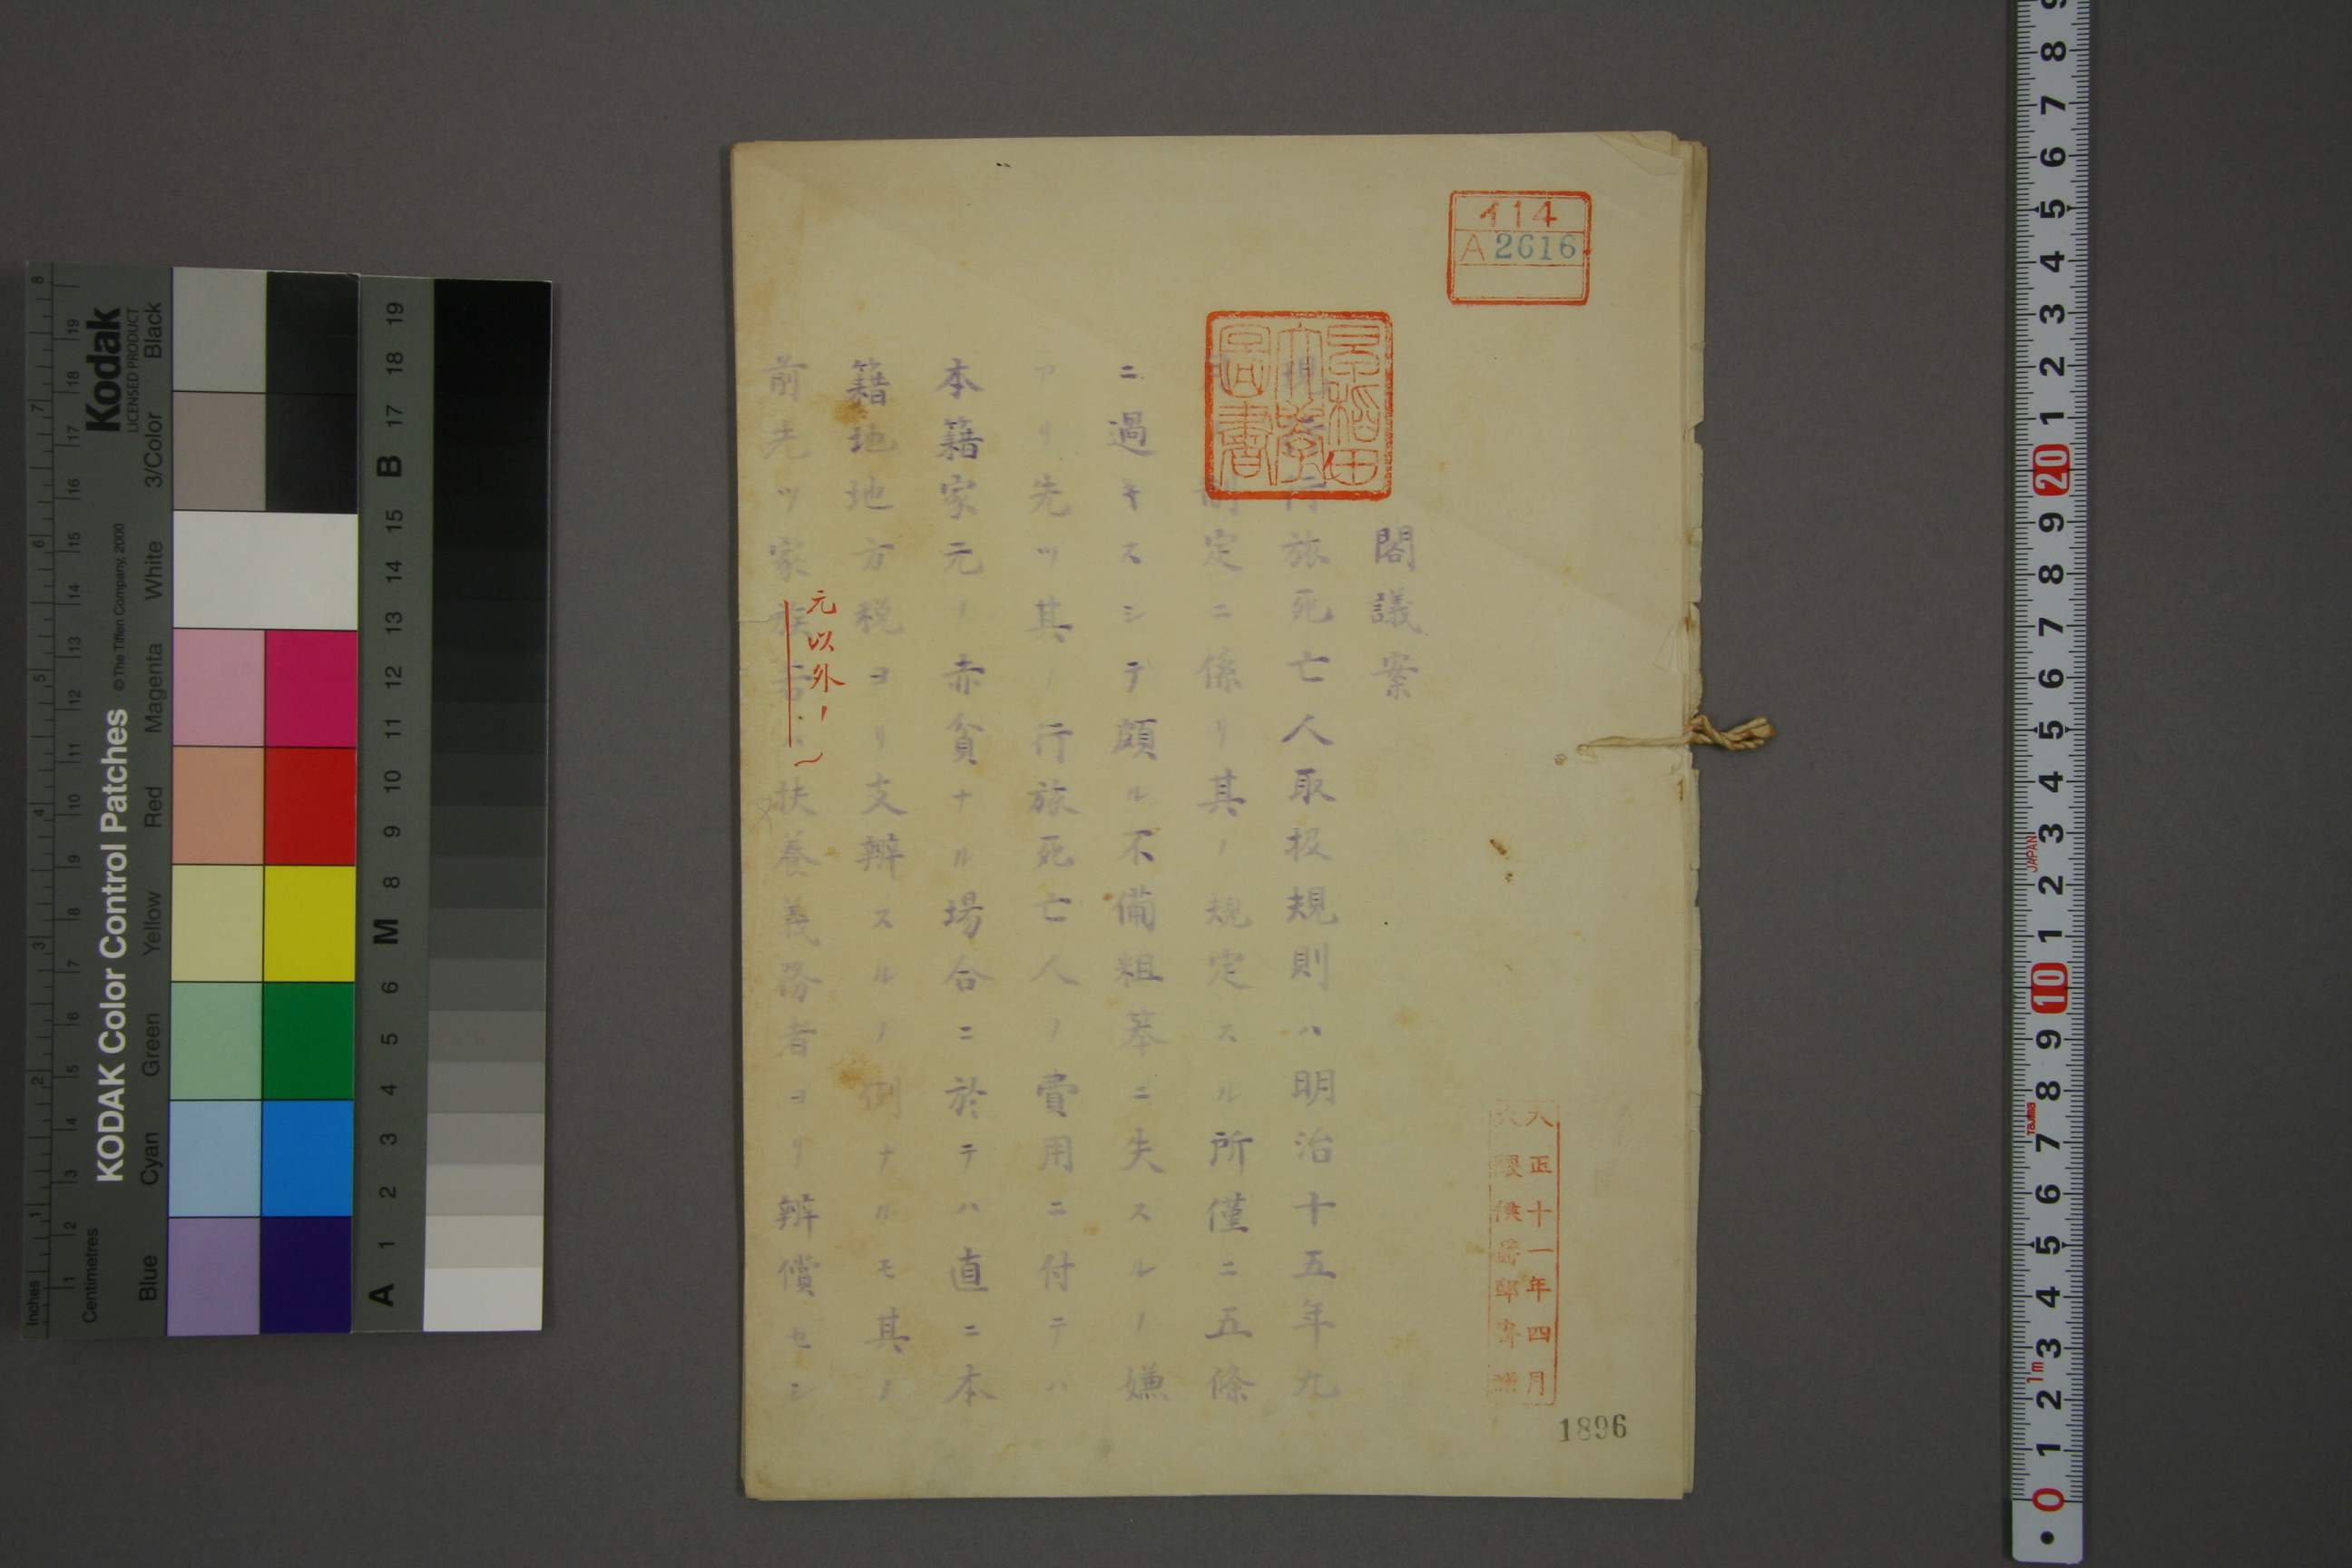 イ14
A 2616
早稲田
大學
圖書
大正十一年四月
大隈侯爵邸寄贈
閣議案
現行旅死亡人取扱規則ハ明治十五年九
制定ニ係リ其ノ規定スル所僅ニ五條
ニ過キスシテ頗ル不備粗笨ニ失スルノ嫌
アリ先ツ其ノ行旅死亡人ノ費用ニ付テハ
本籍家元ノ赤貧ナル場合ニ於テハ直ニ本
籍地地方税ヨリ支辨スルノ例ナルモ其ノ
元以外ノ
前先ツ家族若ハ扶養義務者ヨリ辨償セシ
1896
Kodak
LICENSED PRODUCT
KODAK Color Control Patches
© The Tiffen Company, 2000
Blue Cyan Green Yellow Red Magenta White 3/Color Black
Inches
1 2 3 4 5 6 7 8
Centimetres
1 2 3 4 5 6 7 8 9 10 11 12 13 14 15 16 17 18 19
A 1 2 3 4 5 6 M 8 9 10 11 12 13 14 15 B 17 18 19
0 1 2 3 4 5 6 7 8 9 10 1 2 3 4 5 6 7 8 9 20 1 2 3 4 5 6 7 8 9
1m
Tajima
JAPAN